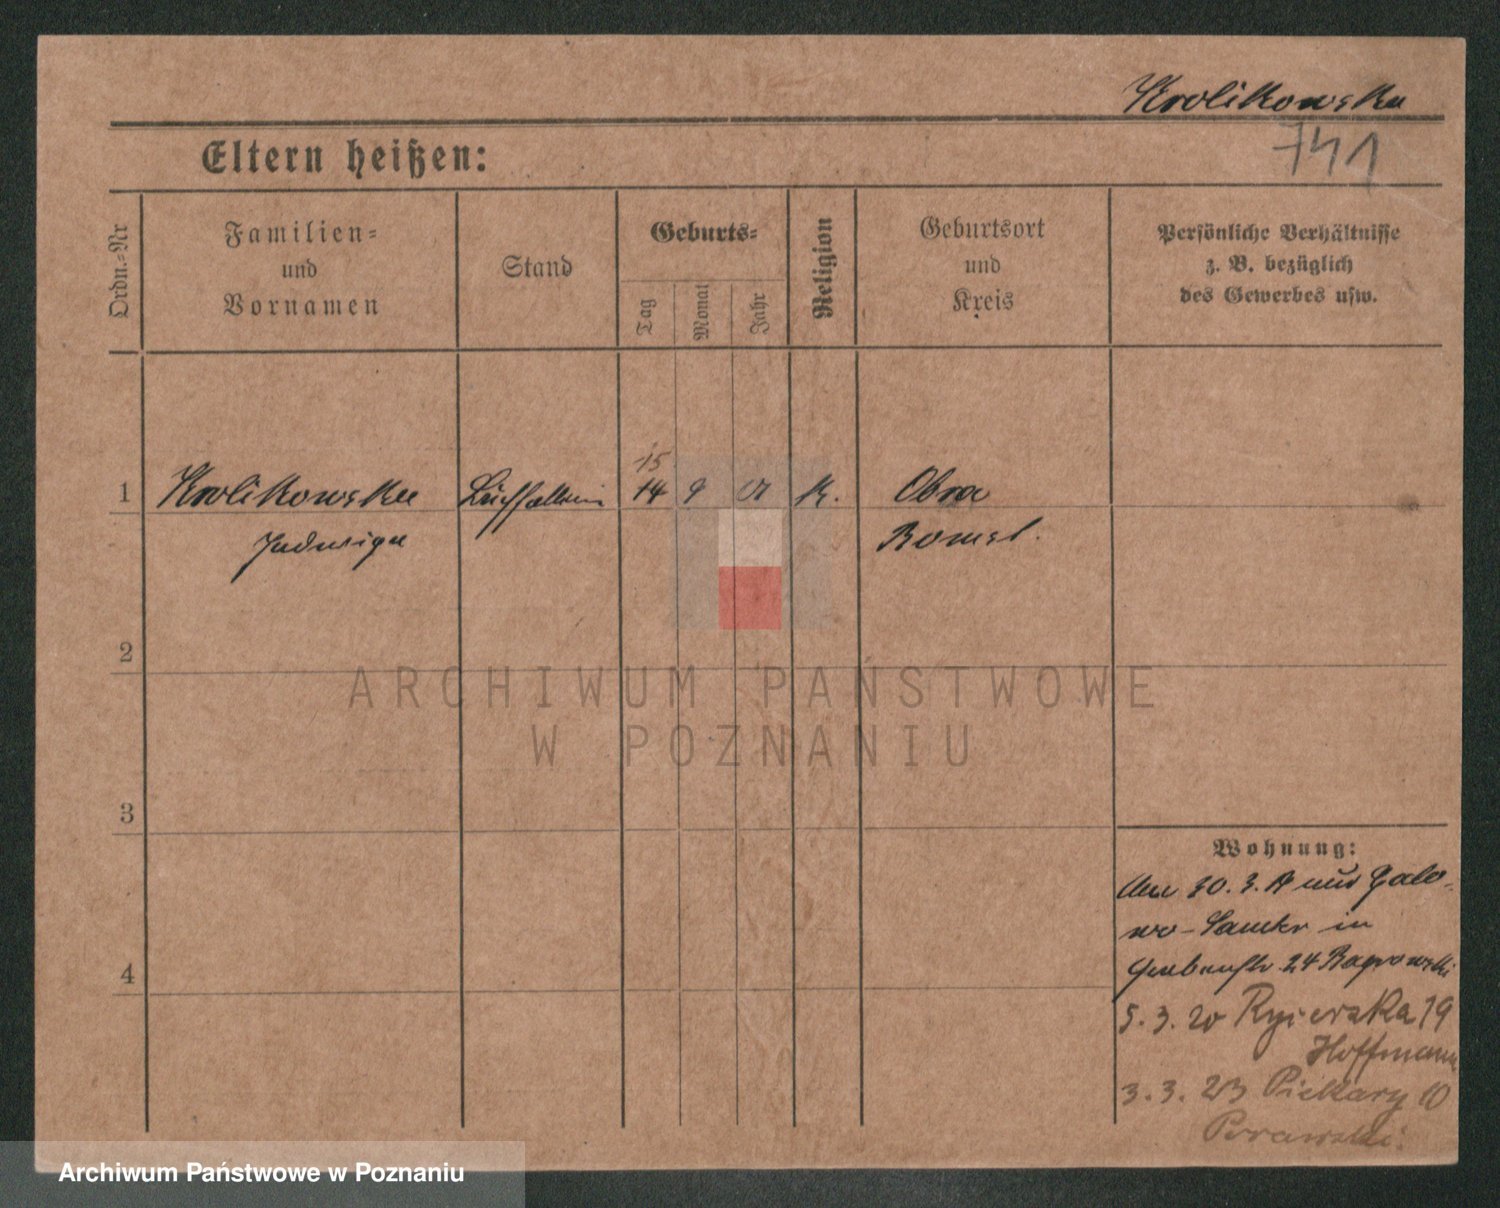 Krolikowska
741
Eltern heißen:
Ordn.-Nr
Familien-
und
Vornamen
Stand
Geburts-
Tag
Monat
Jahr
Religion
Geburtsort
und
Kreis
Persönliche Verhältnisse
z. B. bezüglich
des Gewerbes usw.
15
1 Krolikowska 14 9 01 K. Obra
Jadwiga Bomst.
2
ARCHIWUM PAŃSTWOWE
W POZNANIU
3
Wohnung:
30. 3. 19 aus Galo-
wo - Samter in
Grabenstr. 24 Bagrowski
4
5. 3. 20 Rycerska 19
Hoffmann
3. 3. 23 Piekary 10
Porawski.
Archiwum Państwowe w Poznaniu